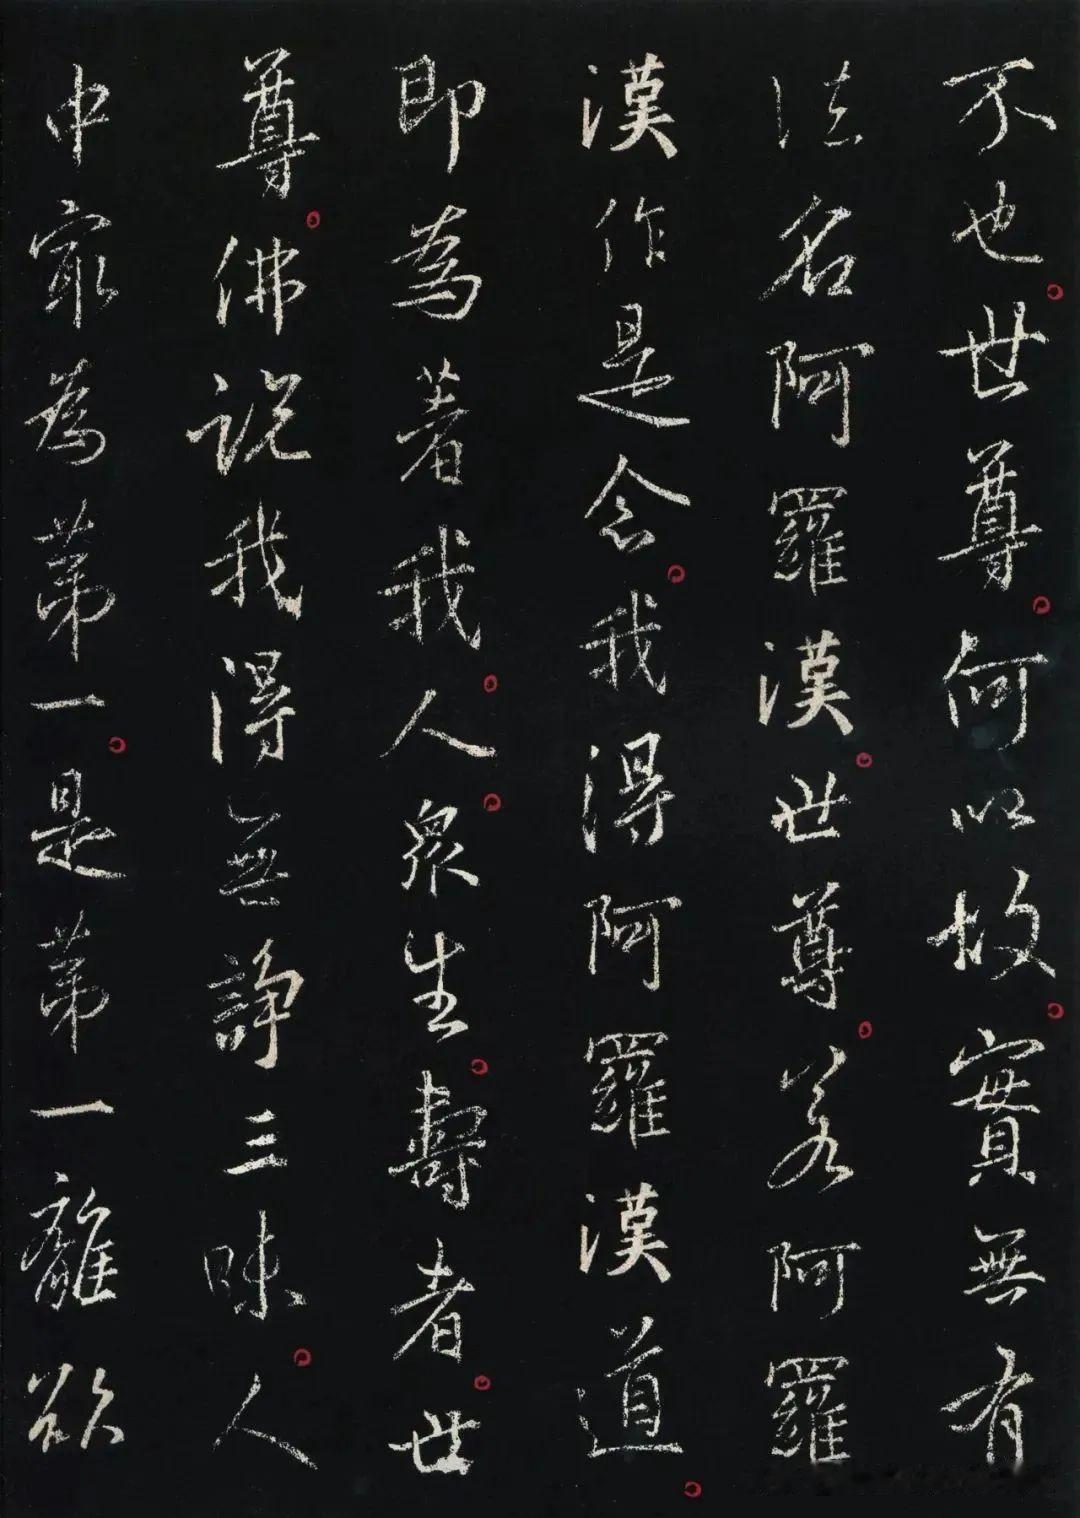 不也世尊何以故實無有
法名阿羅漢世尊若阿羅
漢作是念我得阿羅漢道
即為著我人衆生壽者世
尊佛說我得無諍三昧人
中冣為第一是第一離欲